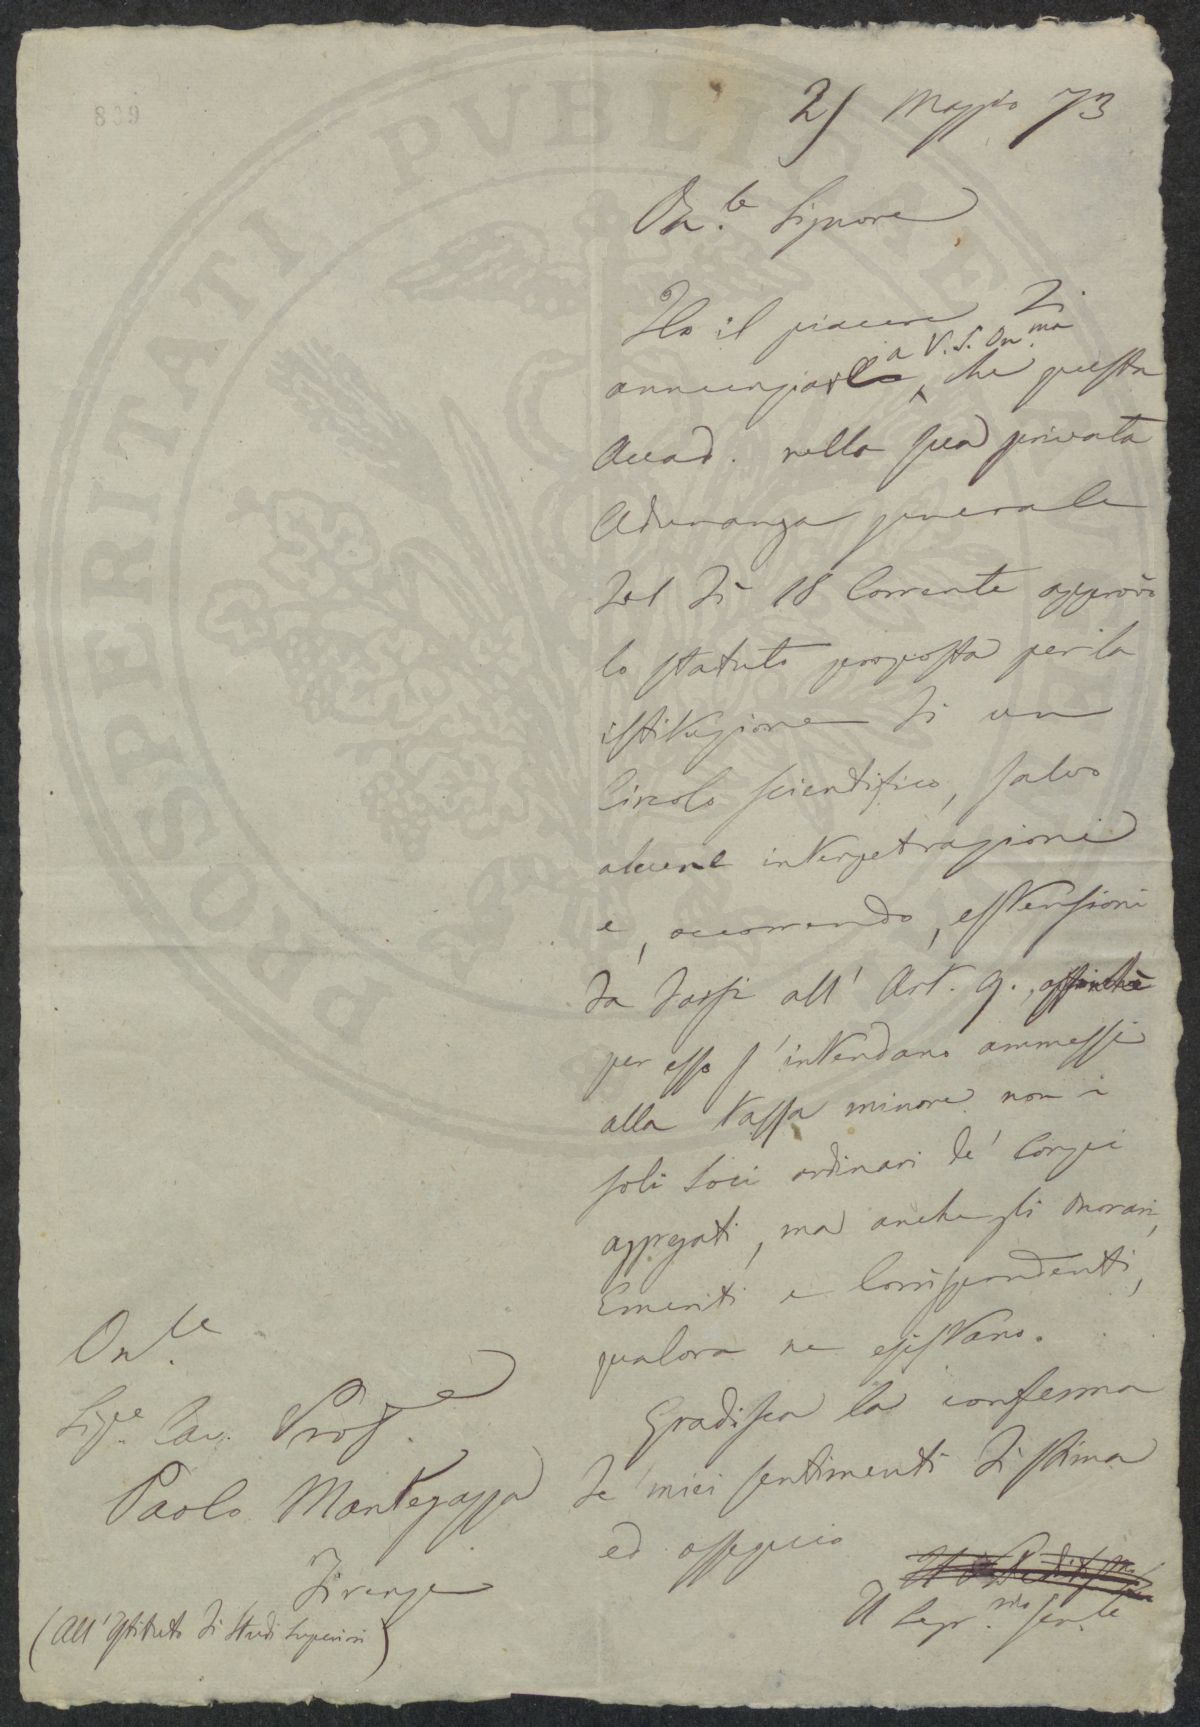 21 Maggio 73
On.le Signore
Ho il piacere di
annunziarle a V. S. On.ma che questa
Accad. nella sua privata
Adunanza generale
del dì 18 Corrente approvò
lo statuto proposto per la
istituzione di un
Circolo scientifico, salvo
alcune interpetrazioni
e, occorrendo, estensioni
da darsi all' Art. 9., affinchè
per esso s'intendano ammessi
alla tassa minore non i
soli Soci ordinari de' Corpi
aggregati, ma anche gli onorari,
Emeriti e Corrispondenti,
qualora ne esistano.
Gradisca la conferma
de' miei sentimenti di stima
ed ossequio
Il Segr.rio Gen.le
On.le
Sig.re Cav. Prof.re
Paolo Mantegazza
Firenze
(All' Istituto di Studi Superiori)
PROSPERITATI PUBLICAE
809